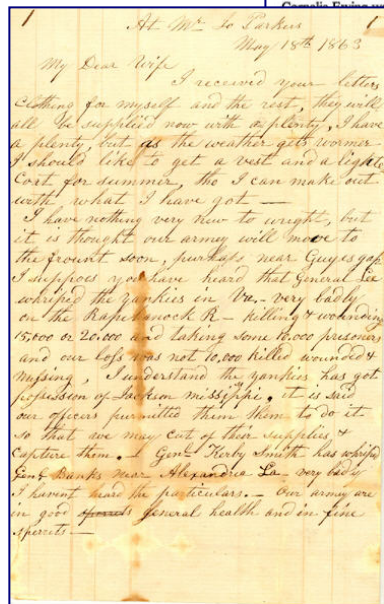 1
1
At Mr Jo Parkers
May 18th 1863
My Dear Wife
I received your letters
clothing for myself and the rest, they will
all be supplied now with a plenty, I have
a plenty, but as the weather gets wormer
I should like to get a vest and a light
Cort for summer, tho I can make out
with what I have got —
I have nothing very new to wright, but
it is thought our army will move to
the frount soon, purhaps near Guyes gap
I suppoes you have heard that General Lee
whriped the yankies in Va,- very badly
on the Rapehanock R - killing & wounding
15,000 or 20,000 and taking some 10,000 prisoners
and our loss was not 10,000 killed wounded &
missing, I understand the yankies has got
possession of Jackson missippi, it is said
our officers purmitted them them to do it
so that we may cut of their supplies, &
capture them. - Genl Kerby Smith has whriped
Genl Banks near Alexandria La very badly
I havent heard the particulars. - Our army are
in good general health and in fine
sperrets —